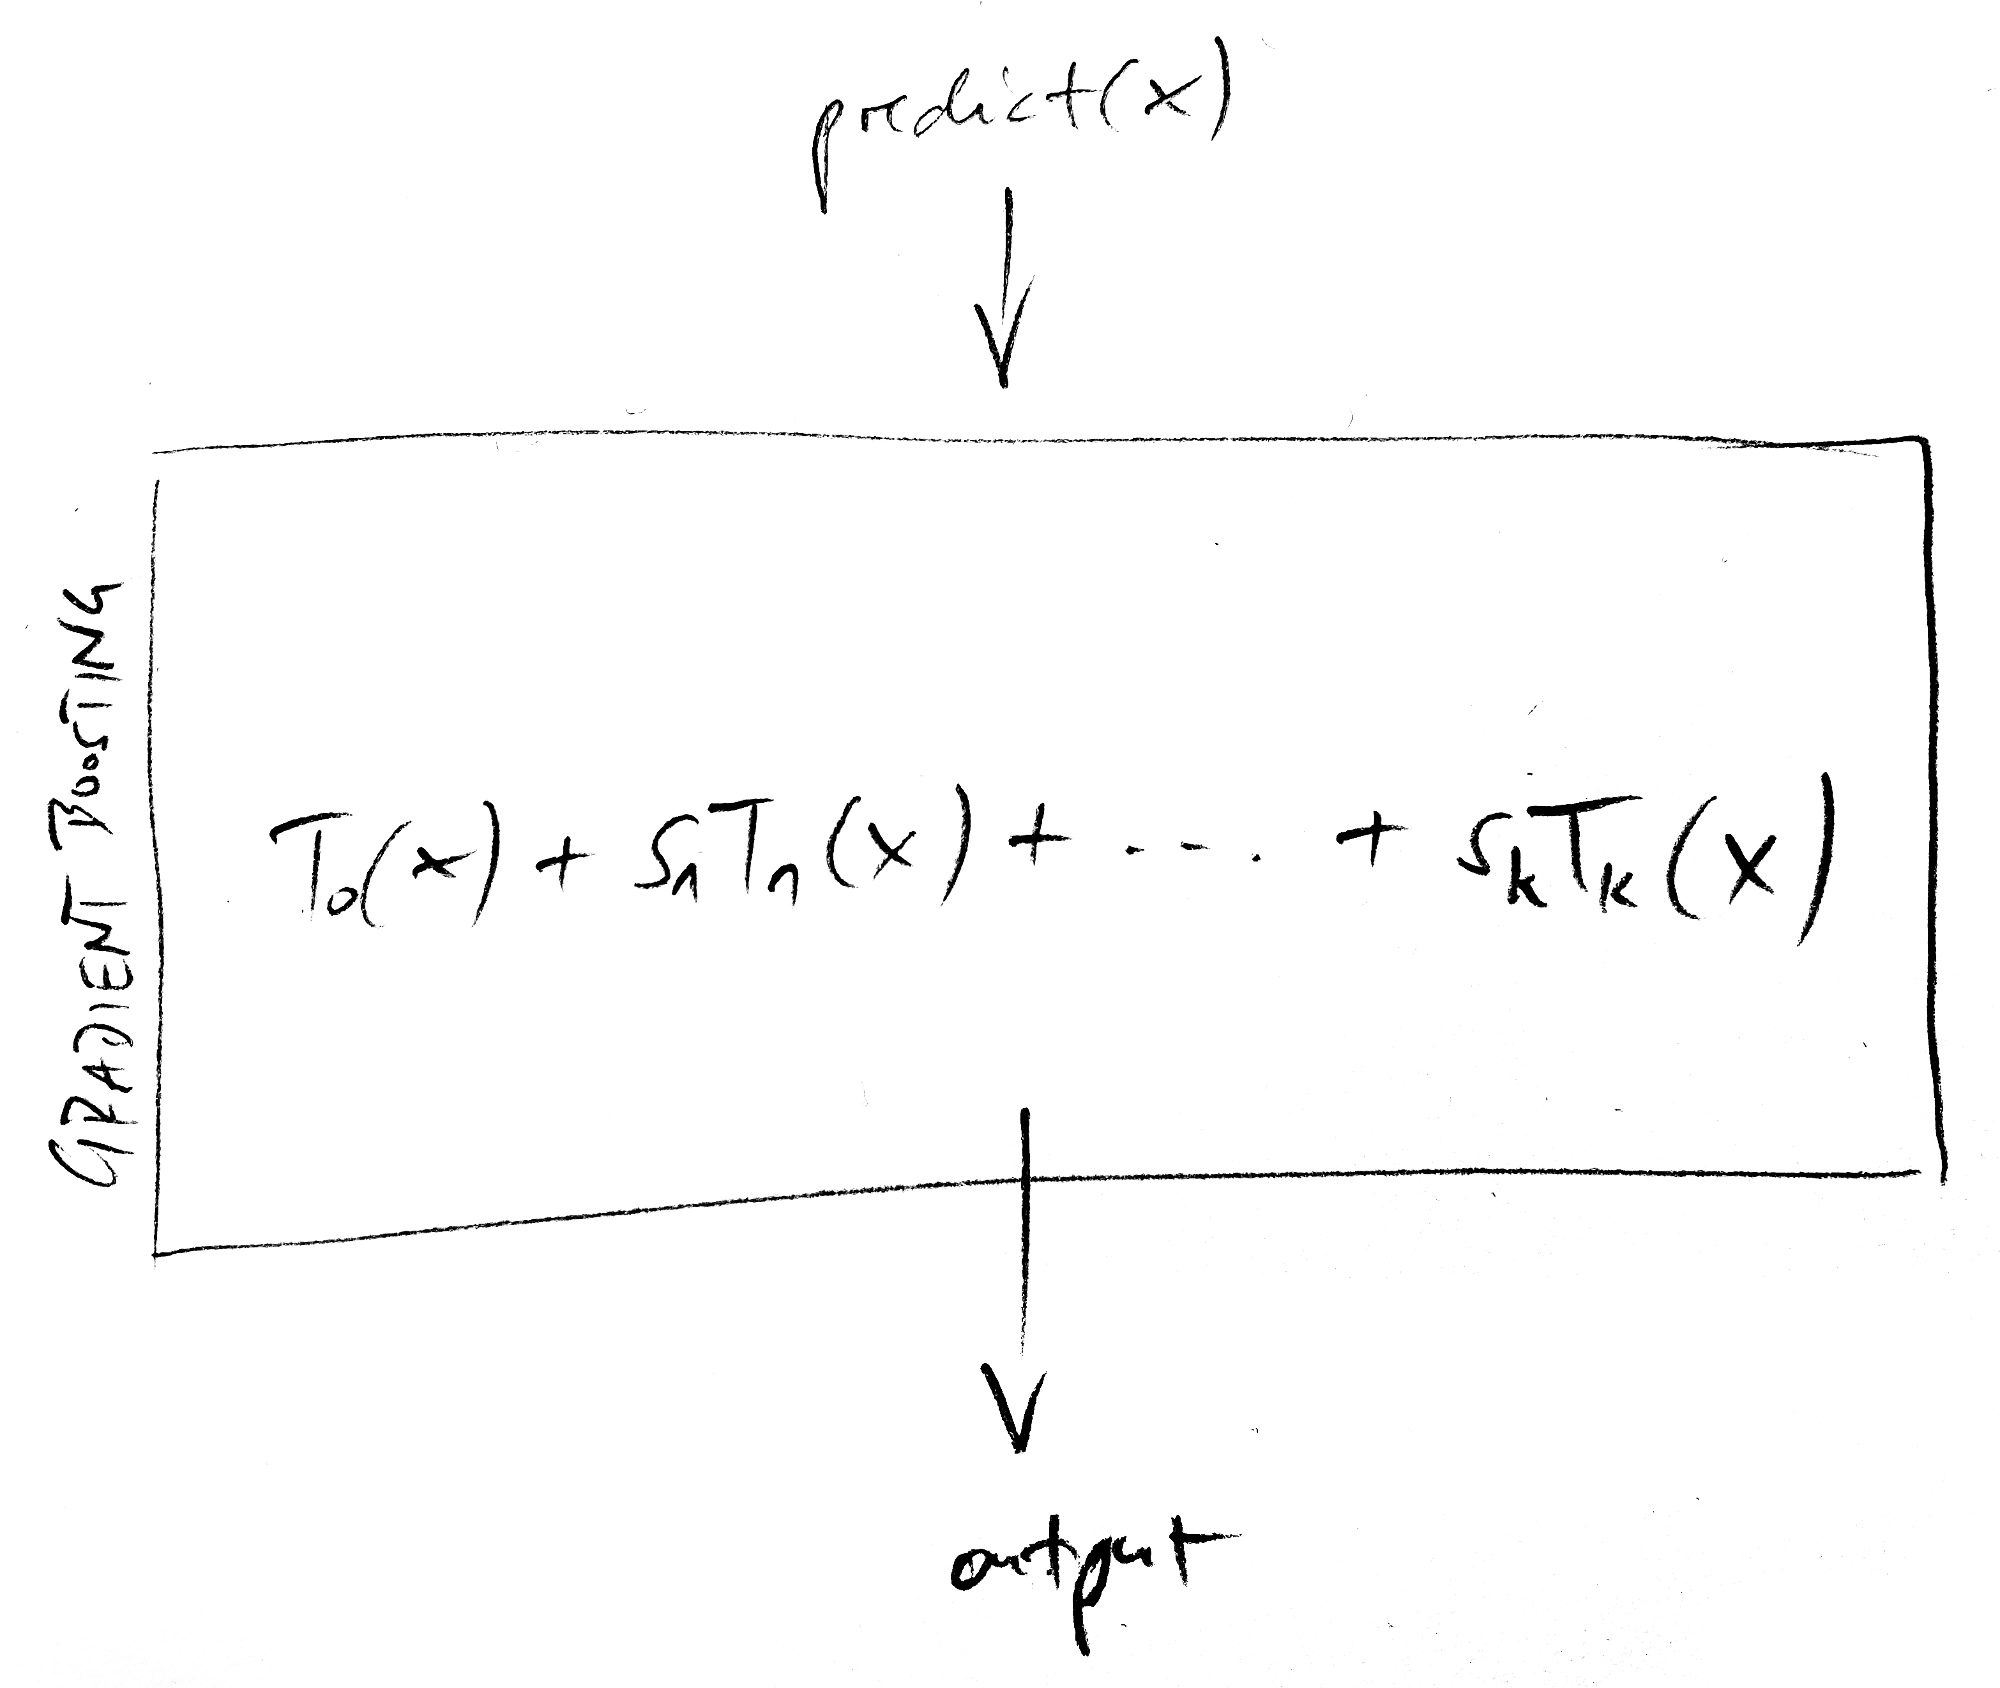 predict(x)
GRADIENT BOOSTING
T₀(x) + S₁T₁(x) + .... + SₖTₖ(x)
output